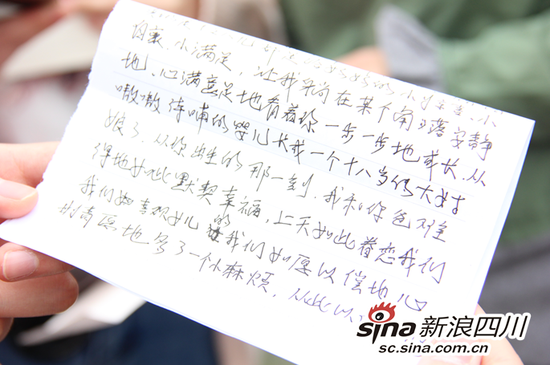 的小
因素、小满足，让我呆在某个角落安静
地、心满意足地看着你一步一步地成长，从
嗷嗷待哺的婴儿长成一个十八岁的大姑
娘了，从你出生的那一刻，我和你爸难
得地如此默契幸福，上天如此眷恋我们
我们如喜欢女儿的，让我们如愿以偿地心
甘情愿地多了一个小麻烦，从此以
sina 新浪四川
sc.sina.com.cn